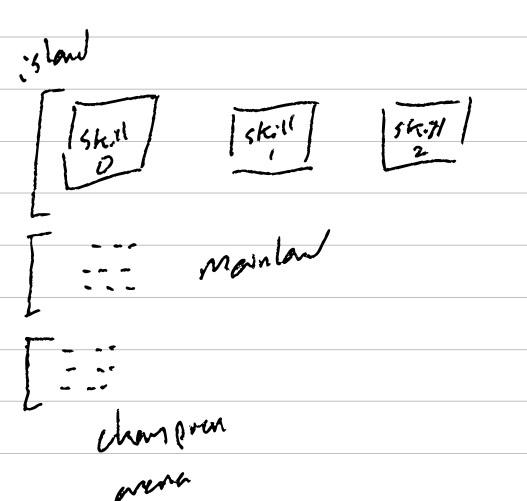 island
skill
0
skill
1
skill
2
mainland
champion
arena